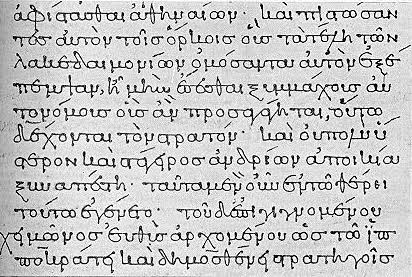 ἀφίστασθαι ἀθηναίων· καὶ πιστώσαν
τες αὐτὸν τοῖς ὅρκοις οἷς τὰ τέλη τῶν
λακεδαιμονίων ὀμόσανται αὐτὸν ἐξέ
πεμψαν, ἢ μὴν ἔσεσθαι ξυμμάχοις αὐ
τονόμοις οἷς ἂν οὕτω
δέχονται τὸν στρατον· καὶ οὐ πολὺ ὕ
στερον καὶ στάγερος ἀνδρίων ἀποικία
ξυναπέστη· ταῦτα μὲν οὖν ἐν τῶ θέρει
τούτω ἐγένετο· τοῦ δ' ἐπιγιγνομένου
χειμῶνος εὐθὺς ἀρχομένου ὡς τῶ ἱπ
ποκράτει καὶ δημοσθένει στρατηγοῖς